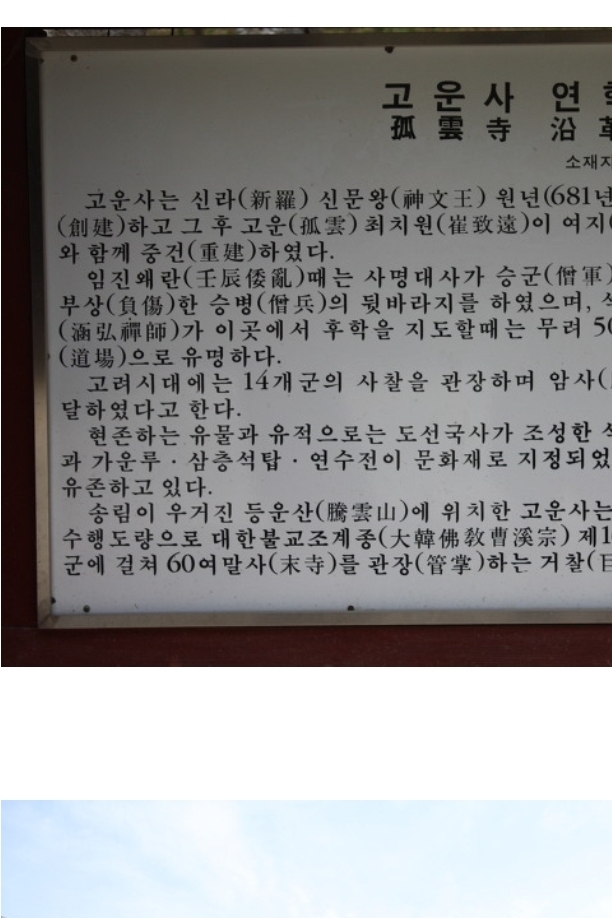 고운사 연
孤雲寺 沿
소재지
고운사는 신라(新羅) 신문왕(神文王) 원년(681년
(創建)하고 그 후 고운(孤雲) 최치원(崔致遠)이 여지
와 함께 중건(重建)하였다.
임진왜란(壬辰倭亂)때는 사명대사가 승군(僧軍)
부상(負傷)한 승병(僧兵)의 뒷바라지를 하였으며,
(涵弘禪師)가 이곳에서 후학을 지도할때는 무려 50
(道場)으로 유명하다.
고려시대에는 14개군의 사찰을 관장하며 암사(
달하였다고 한다.
현존하는 유물과 유적으로는 도선국사가 조성한
과 가운루 · 삼층석탑 · 연수전이 문화재로 지정되었
유존하고 있다.
송림이 우거진 등운산(騰雲山)에 위치한 고운사는
수행도량으로 대한불교조계종(大韓佛敎曹溪宗) 제1
군에 걸쳐 60여말사(末寺)를 관장(管掌)하는 거찰(